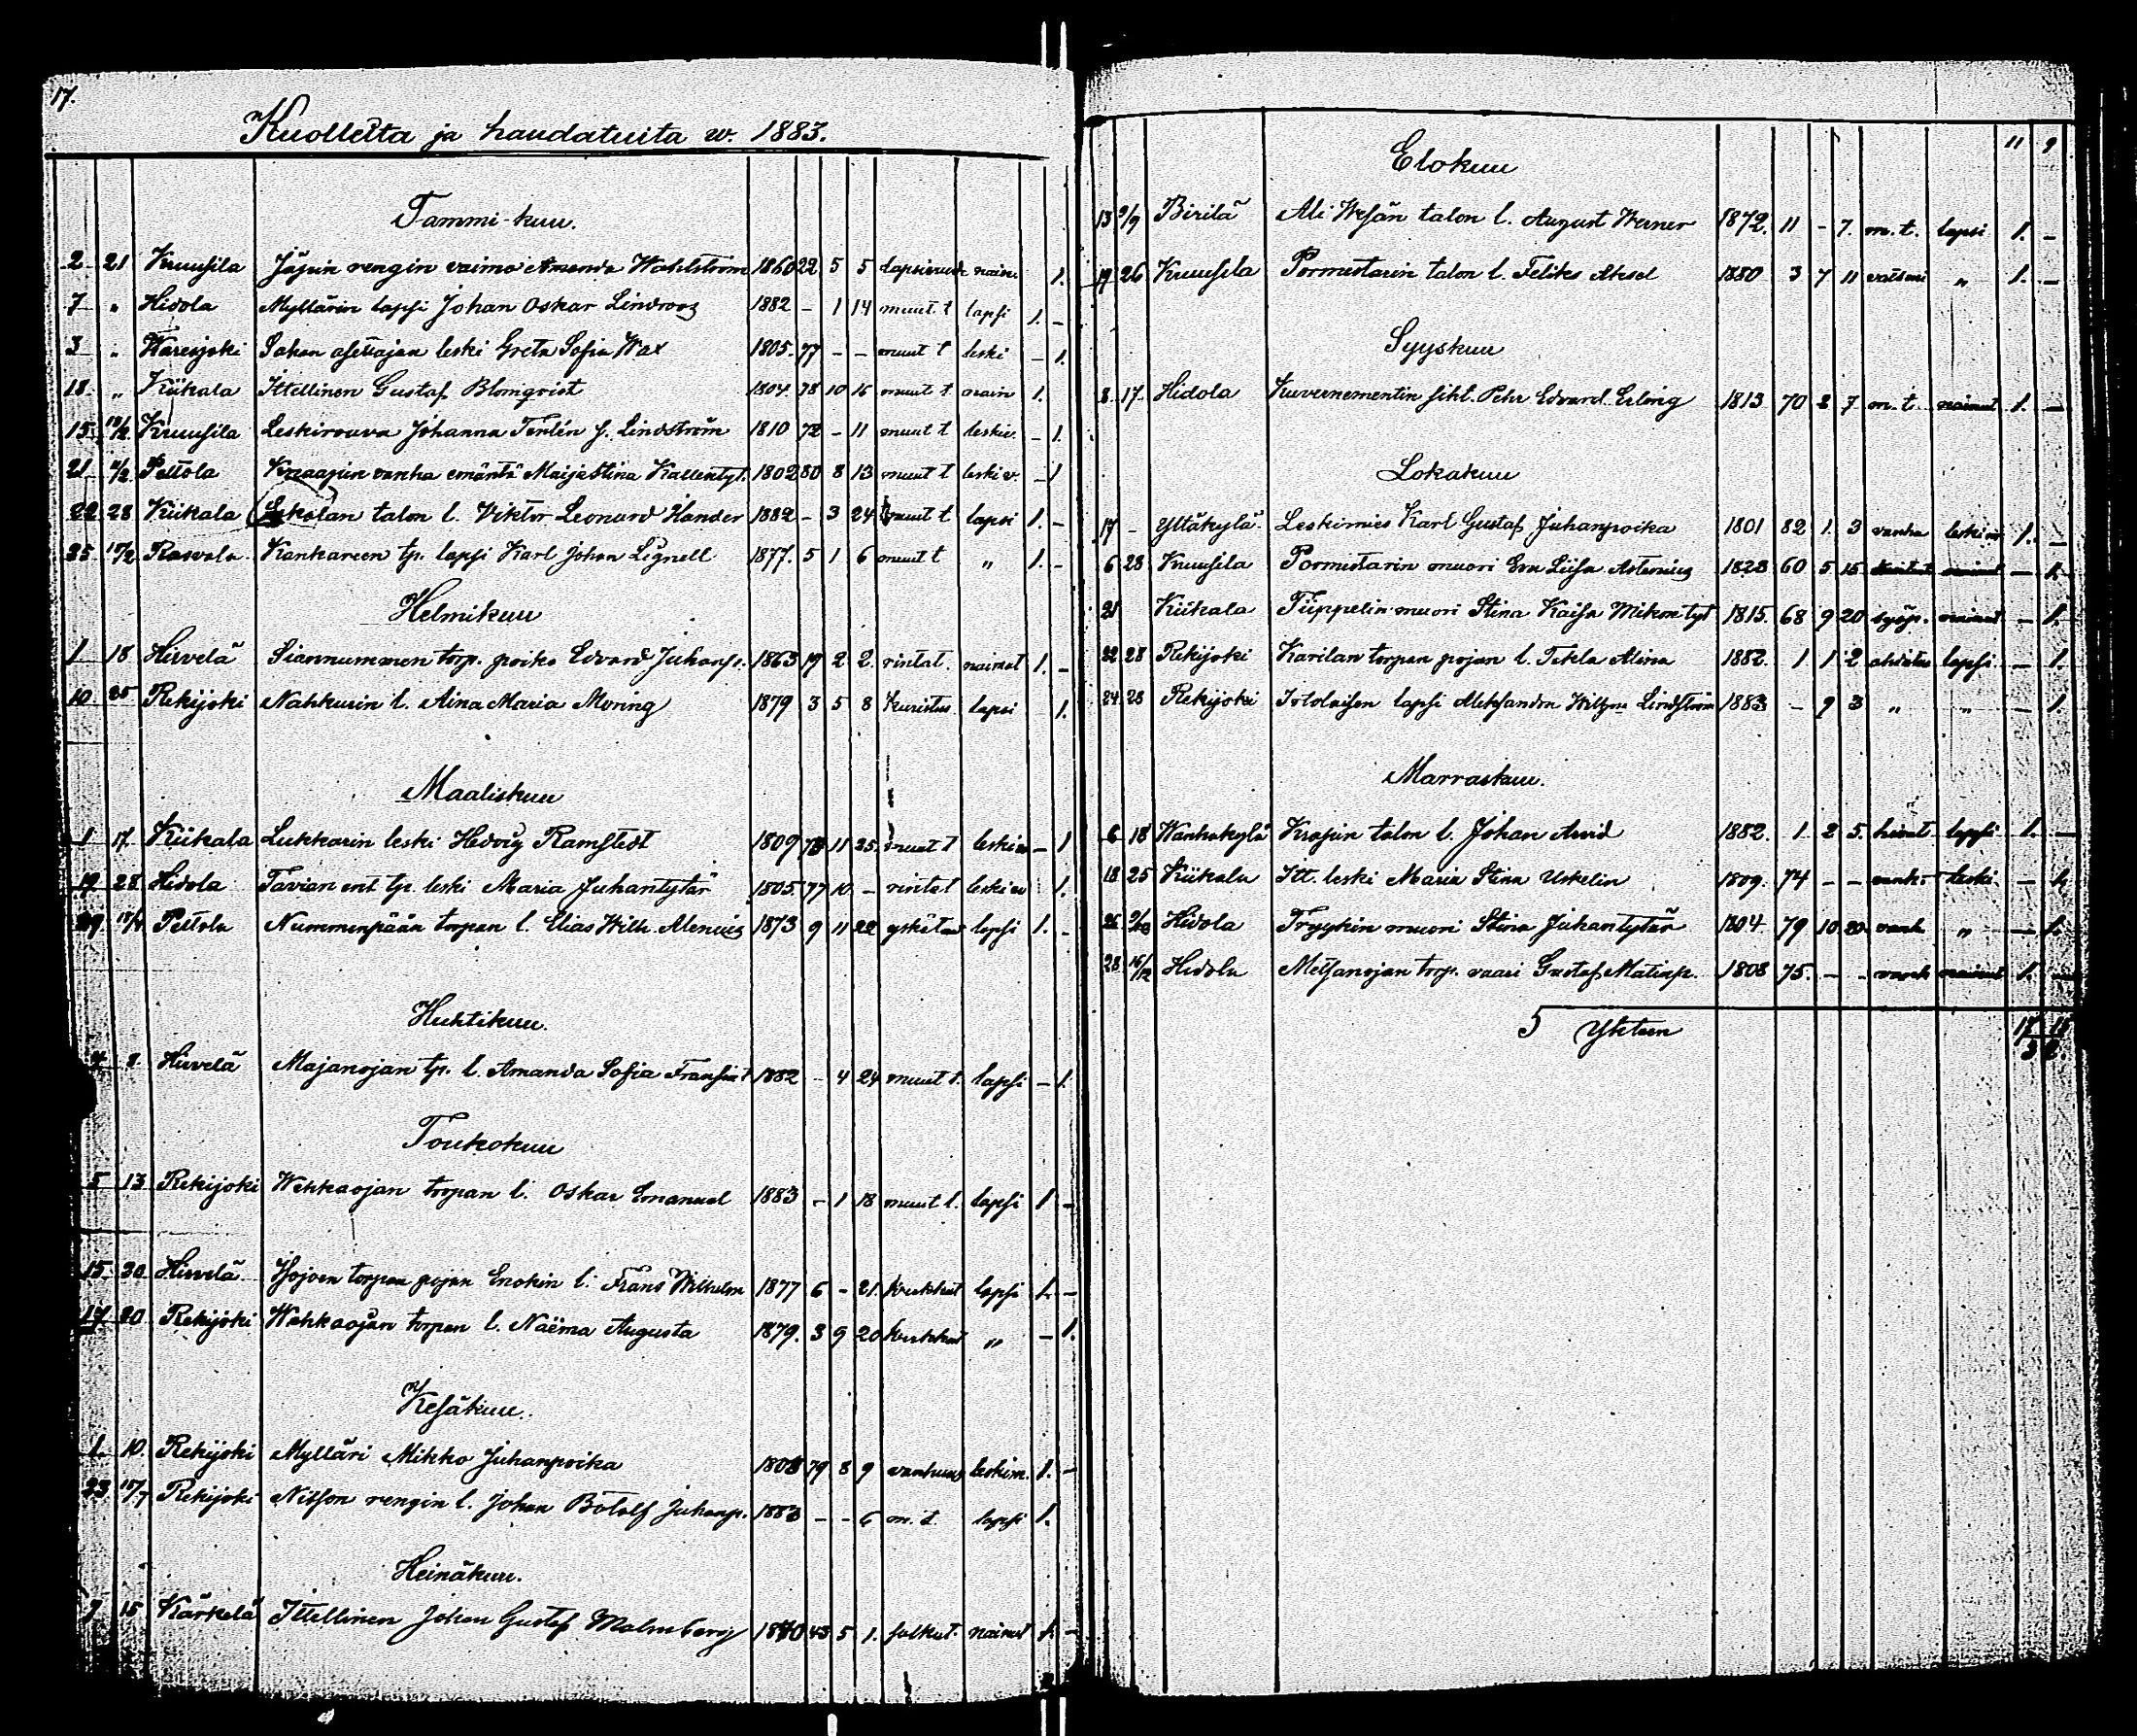 17.
Kuolleita ja haudatuita w. 1883.
Tammi-kuu.
2 21 Kruusila Jäpin rengin vaimo Amanda Wahlström 1860 22 5 5 lapsivuode nain. 1.
7 „ Hidola Myllärin lapsi Johan Oskar Lindroos 1882 – 1 14 muut. t lapsi 1. –
3 „ Waresjoki Sahan asettajan leski Greta Sofia Wax 1805. 77 – – muut t leski – 1.
18. „ Kiikala Ittellinen Gustaf Blomqvist 1804. 78 10 16 muut t nain 1.
15 Kruusila Leskirouva Johanna Terlén f. Lindström 1810 72 – 11 muut t leskiv. – 1.
21 4/2 Peltola Knaapin vanha emäntä Maija Stina Kallentyt. 1802 80 8 13 muut t leskiv. – 1
22 28 Kiikala talon l. Viktor Leonard Hander 1882 – 3 24 muut t lapsi 1. –
25 Rasvala Kankareen tp. lapsi Karl Johan Lignell 1877. 5 1 6 muut t „ 1. –
Helmikuu
1 18 Hirvelä Siannummen torp. poika Edvard Juhanp. 1863 19 2 2. rintat. naimat 1. –
10 25 Rekijoki Nahkurin l. Aina Maria Moring 1879 3 5 8 kuristus lapsi 1.
Maaliskuu
1 17. Kiikala Lukkarin leski Hedvig Ramstedt 1809 73 11 25. muut t leski – 1
19 28 Hidola Tavian ent tp. leski Maria Juhantytär 1805. 77 10 – rintat leski 1.
29. Peltola Nummenpään torpan l. Elias Wilh. Alenius 1873 9 11 22 yskätau lapsi 1. –
Huhtikuu.
4 8 Hirvelä Majanojan tp. l. Amanda Sofia Fransint 1882 – 4 24 muut t. lapsi – 1.
Toukokuu
5 13 Rekijoki Wehkaojan torpan l. Oskar Emanuel 1883 – 1 18 muut t. lapsi 1 –
15. 30 Hirvelä Isojoen torpan pojan Enokin l. Frans Wilhelm 1877 6 – 21. kurkkut lapsi 1. –
17 20 Rekijoki Wehkaojan torpan l. Naëma Augusta 1879. 3 9 20 kurkkut „ – 1.
Kesäkuu.
1. 10. Rekijoki Mylläri Mikko Juhanpoika 1803 79 8 9 vanhuus leskim. 1. –
23 15/7 Rekijoki Nilson rengin l. Johan Botolf Juhanp. 1883 – – 6 m. t. lapsi 1.
Heinäkuu.
7 15 Kärkelä Ittellinen Johan Gustaf Malmberg 1840 43 5 1. halkut. naimat 1. –
11 9
Elokuu
13 2/9 Birilä Ali Wesän talon l. August Werner 1872. 11 – 7. m. t. lapsi 1. –
19 26 Kruusila Pormestarin talon l. Feliks Aksel 1880 3 7 11 „ 1. –
Syyskuu
8 17. Hidola Kuvernementin siht. Pehr Edvard Erling 1813 70 2 7 m. t. nainut 1. –
Lokakuu
17 – Yltäkylä. Leskimies Karl Gustaf Juhanpoika 1801 82 1. 3 vanha leskim 1. –
6 28 Kruusila Pormestarin muori Eva Liisa Astenius 1823 60 5 15 – 1.
21 Kiikala Tiippelin muori Stina Kaisa Mikontyt 1815. 68 9 20 syöp. nainut – 1.
22 28 Rekijoki Karilan torpan pojan l. Tekla Alina 1882. 1 1 2 lapsi – 1.
24 28 Rekijoki Itolaisen lapsi Aleksandra Lindström 1883 – 9 3 „ „ – 1.
Marraskuu.
6 18 Wanhakylä Krapin talon l. Johan Arvid 1882. 1. 2 5. lapsi 1. –
18 25 Kiikala Itt. leski Maria Stina Uskelin 1809. 74 – – vanh. leski. – 1.
26 Hidola Tryykin muori Stina Juhantytär 1804 79 10 20 vanh „ – 1.
28 16/12 Hidola Metsanojan torp. vaari Gustaf Matinp. 1808 75. – – vanh nainut 1. –
Yhteen